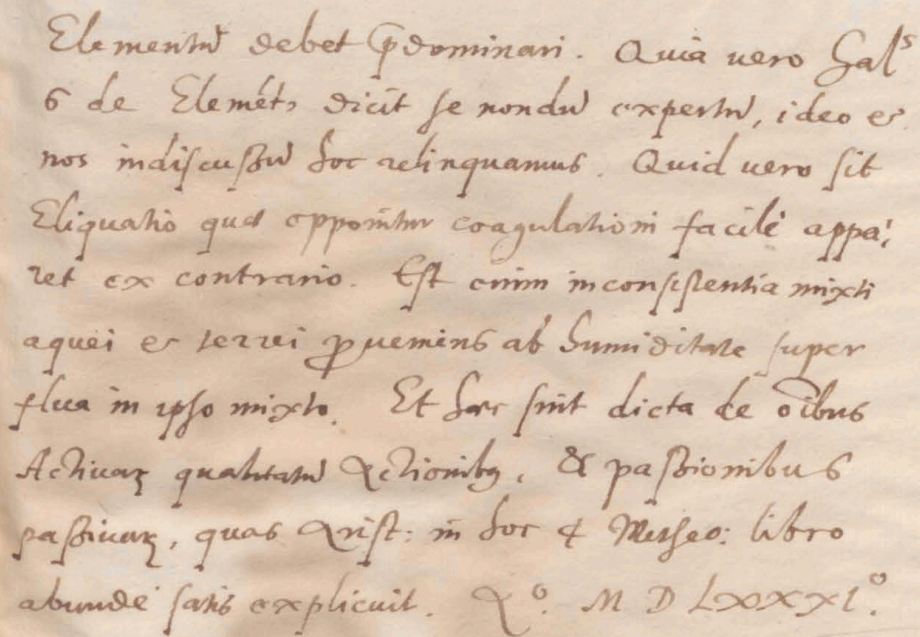 Elementũ debet p̄dominari. Quia vero Gal^s
6 de Elemẽt, dicit se nondũ expertũ, ideo et
nos indiscussũ hoc relinquamus. Quid vero sit
Eliquatio quæ opponitur coagulationi facilè appa,
ret ex contrario. Est enim inconsistentia mixti
aquei et terrei ꝓueniens ab humiditate super
flua in ipso mixto. Et hæc sint dicta de oĩbus
Actiuaꝝ qualitatũ Actionibꝫ, & passionibus
passiuaꝝ, quas Arist: in hoc 4 Metheo: libro
abundè satis explicuit. A°. M D LXXXI°.